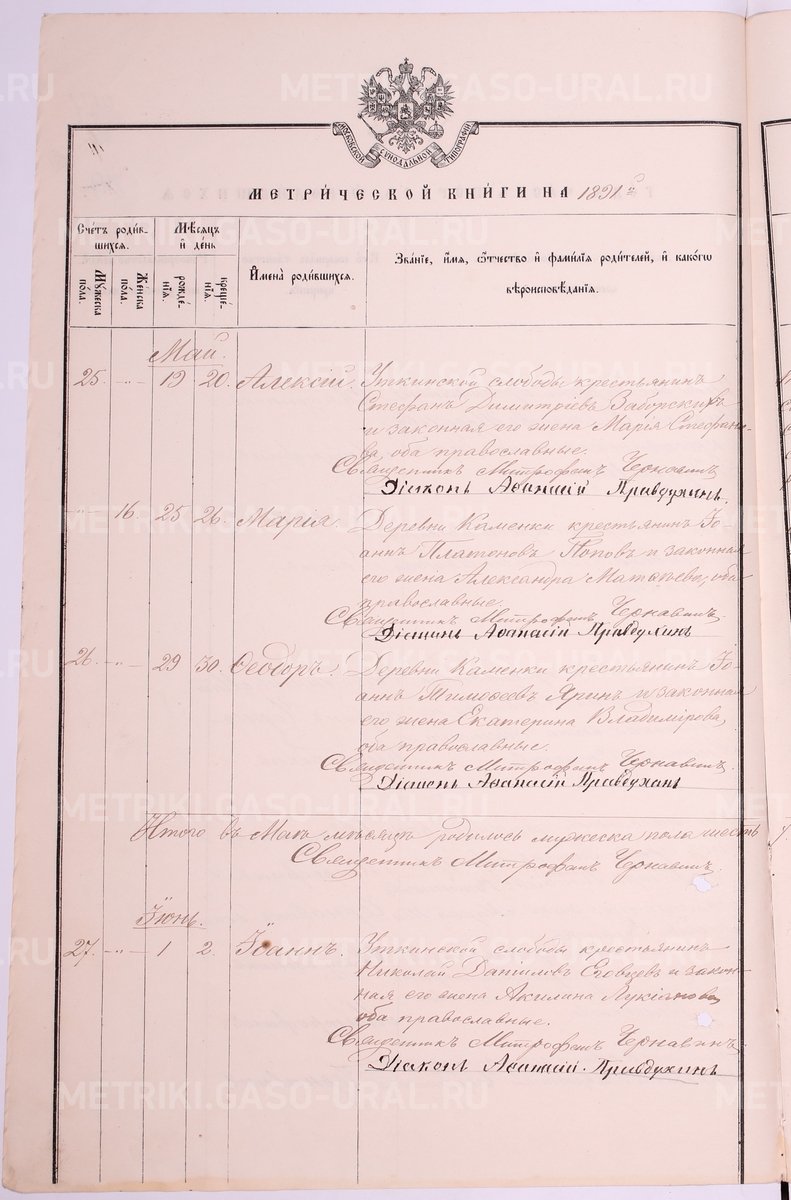 METRIKI.GASO-URAL.RU
МОСКОВСКОЙ СѴНОДАЛЬНОЙ ТИПОГРАФІИ
МЕТРИ́ЧЕСКОЙ КНИ́ГИ НА 1891 й
Сче́тъ роди́вшихся.
Му́жеска по́ла.
Же́нска по́ла.
Мѣ́сяцъ и́ де́нь
рожде́нїя.
креще́нїя.
И҆мена̀ роди́вшихся.
Зва́нїе, и҆́мя, ѻ҆́тчество и҆ фами́лїя роди́телей, и҆ како́гѡ
вѣроисповѣ́данїя.
Май.
25. -„- 19 20. Алексій Уткинской слободы крестьянинъ
Стефанъ Димитріевъ Заборскихъ
и законная его жена Марія Стефано-
ва, оба православные.
Священникъ Митрофанъ Чернавинъ
Діаконъ Аѳанасій Правдухинъ.
-„- 16. 25 26. Марія. Деревни Каменки крестьянинъ Іо-
аннъ Платоновъ Поповъ и законная
его жена Александра оба
православные.
Священникъ Митрофанъ Чернавинъ
Діаконъ Аѳанасій Правдухинъ
26. -„- 29 30. Ѳеодоръ. Деревни Каменки крестьянинъ Іо-
аннъ Тимоѳеевъ Яринъ и законная
его жена Екатерина Владимірова,
оба православные.
Священникъ Митрофанъ Чернавинъ.
Діаконъ Аѳанасій Правдухинъ
Итого въ Маѣ мѣсяцѣ родилось мужеска пола шесть
Священникъ Митрофанъ Чернавинъ.
Іюнь.
27. -„- 1 2. Іоаннъ. Уткинской слободы крестьянинъ
Николай Даніиловъ и закон-
ная его жена Акилина Лукіанова
оба православные.
Священникъ Митрофанъ Чернавинъ.
Діаконъ Аѳанасій Правдухинъ